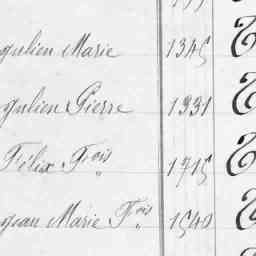 Julien Marie 1345
Julien Pierre 1331
Félix Fois 1715
Jean Marie Fois 1540